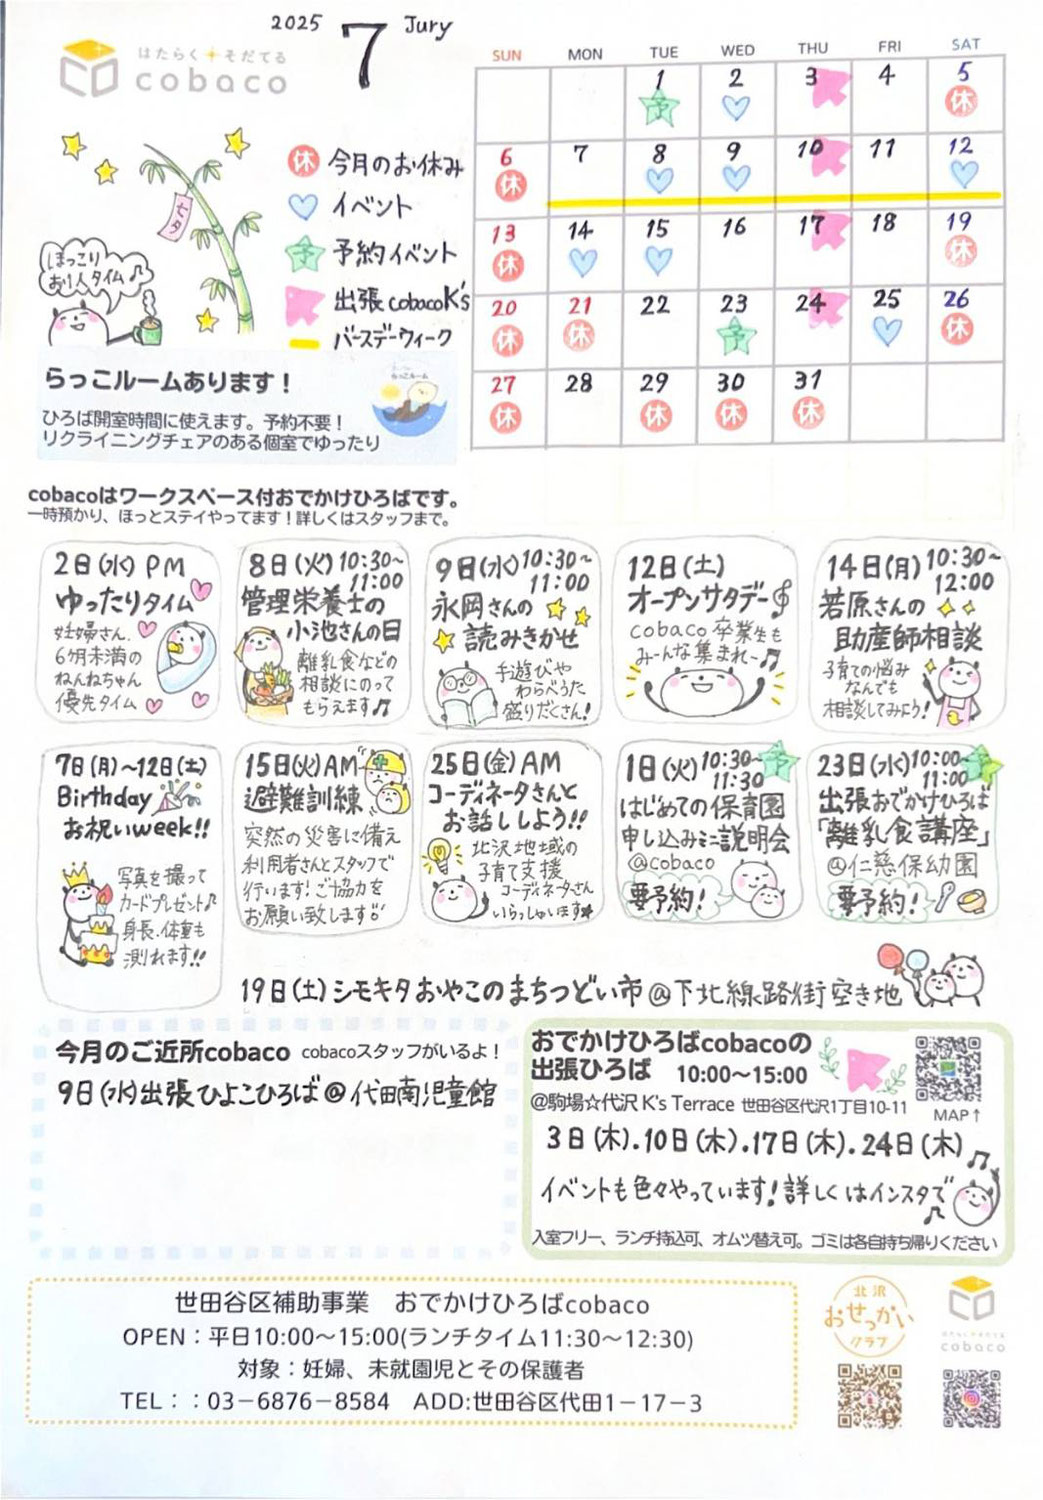 2025 7 Jury
はたらく そだてる
cobaco
SUN MON TUE WED THU FRI SAT
1 2 3 4 5
予 休
6 7 8 9 10 11 12
休
13 14 15 16 17 18 19
休 休
20 21 22 23 24 25 26
休 休 予 休
27 28 29 30 31
休 休 休 休
休 今月のお休み
イベント
予 予約イベント
出張cobacoK's
バースデーウィーク
七夕
ほっこり
お1人タイム♪
らっこルームあります！
らっこルーム
ひろば開室時間に使えます。予約不要！
リクライニングチェアのある個室でゆったり
cobacoはワークスペース付おでかけひろばです。
一時預かり、ほっとステイやってます！詳しくはスタッフまで。
2日(水) PM
ゆったりタイム
妊婦さん、
6ヶ月未満の
ねんねちゃん
優先タイム
8日(火) 10:30~
11:00
管理栄養士の
小池さんの日
離乳食などの
相談にのって
もらえます♫
9日(水) 10:30~
11:00
永岡さんの
読みきかせ
手遊びや
わらべうた
盛りだくさん!
12日(土)
オープンサタデー
cobaco卒業生も
み～んな集まれ~♫
14日(月) 10:30~
12:00
若原さんの
助産師相談
子育ての悩み
なんでも
相談してみよう!
7日(月)~12日(土)
Birthday
お祝いweek!!
写真を撮って
カードプレゼント♪
身長、体重も
測れます!!
15日(火) AM
避難訓練
突然の災害に備え
利用者さんとスタッフで
行います!ご協力を
お願い致します
25日(金) AM
コーディネータさんと
お話ししよう!!
北沢地域の
子育て支援
コーディネータさん
いらっしゃいます★
1日(火) 10:30~
11:30
予
はじめての保育園
申し込みミニ説明会
@cobaco
要予約!
23日(水) 10:00~
11:00
予
出張おでかけひろば
「離乳食講座」
@仁慈保幼園
要予約!
19日(土) シモキタおやこのまちつどい市@下北線路街空き地
今月のご近所cobaco cobacoスタッフがいるよ！
9日(水)出張ひよこひろば@代田南児童館
おでかけひろばcobacoの
出張ひろば 10:00〜15:00
@駒場☆代沢 K's Terrace 世田谷区代沢1丁目10-11
MAP↑
3日(木).10日(木).17日(木).24日(木)
イベントも色々やっています!詳しくはインスタで
入室フリー、ランチ持込可、オムツ替え可。ゴミは各自持ち帰りください
世田谷区補助事業 おでかけひろばcobaco
OPEN：平日10:00〜15:00(ランチタイム11:30〜12:30)
対象：妊婦、未就園児とその保護者
TEL：：03－6876－8584 ADD:世田谷区代田1－17－3
北沢
おせっかい
クラブ
はたらく そだてる
cobaco